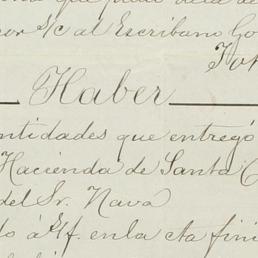 or S/c al Escribano Go
Haber
ntidades que entregó
Hacienda de Santa C
del Sr. Nava
do á Elf. en la cta fini